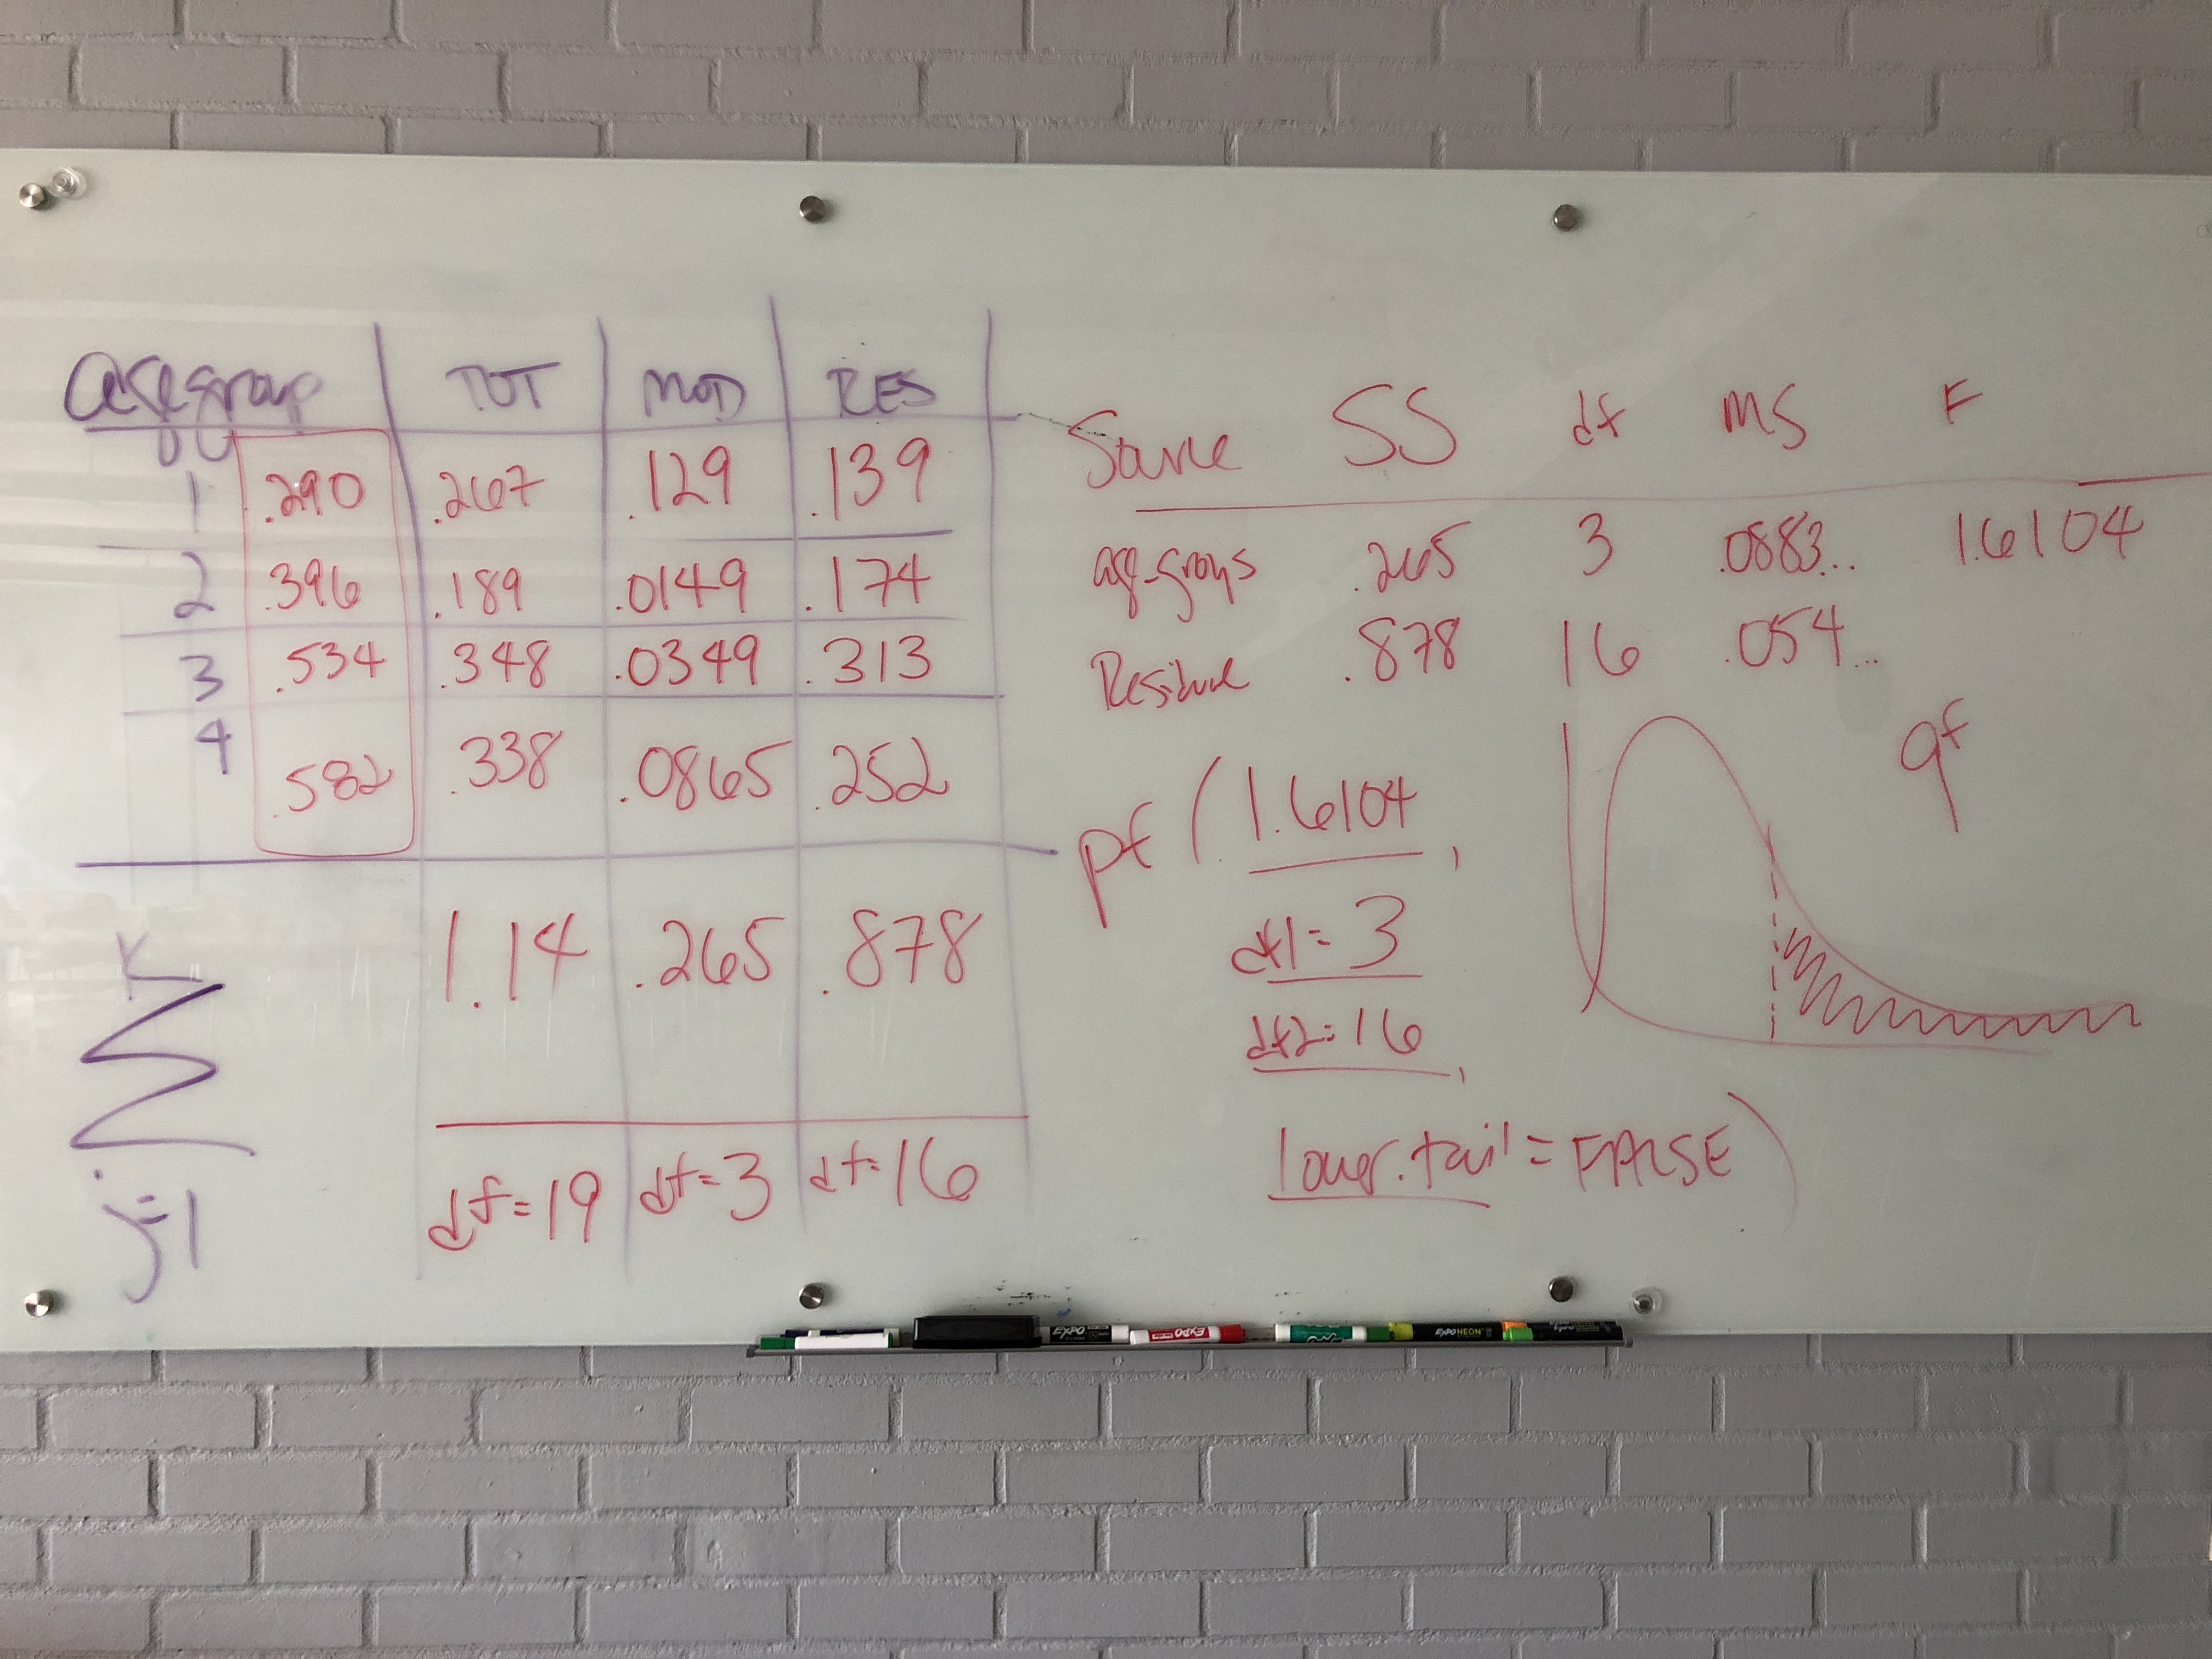 age group TOT MOD RES
1 .290 .267 .129 .139
2 .396 .189 .0149 .174
3 .534 .348 .0349 .313
4 .582 .338 .0865 .252
K
Σ 1.14 .265 .878
j=1
df=19 df=3 df=16
Source SS df MS F
age-groups .265 3 .0883... 1.6104
Residual .878 16 .054...
pf (1.6104,
df1=3
df2=16,
lower.tail=FALSE)
qf
EXPO
EXPO
EXPO NEON